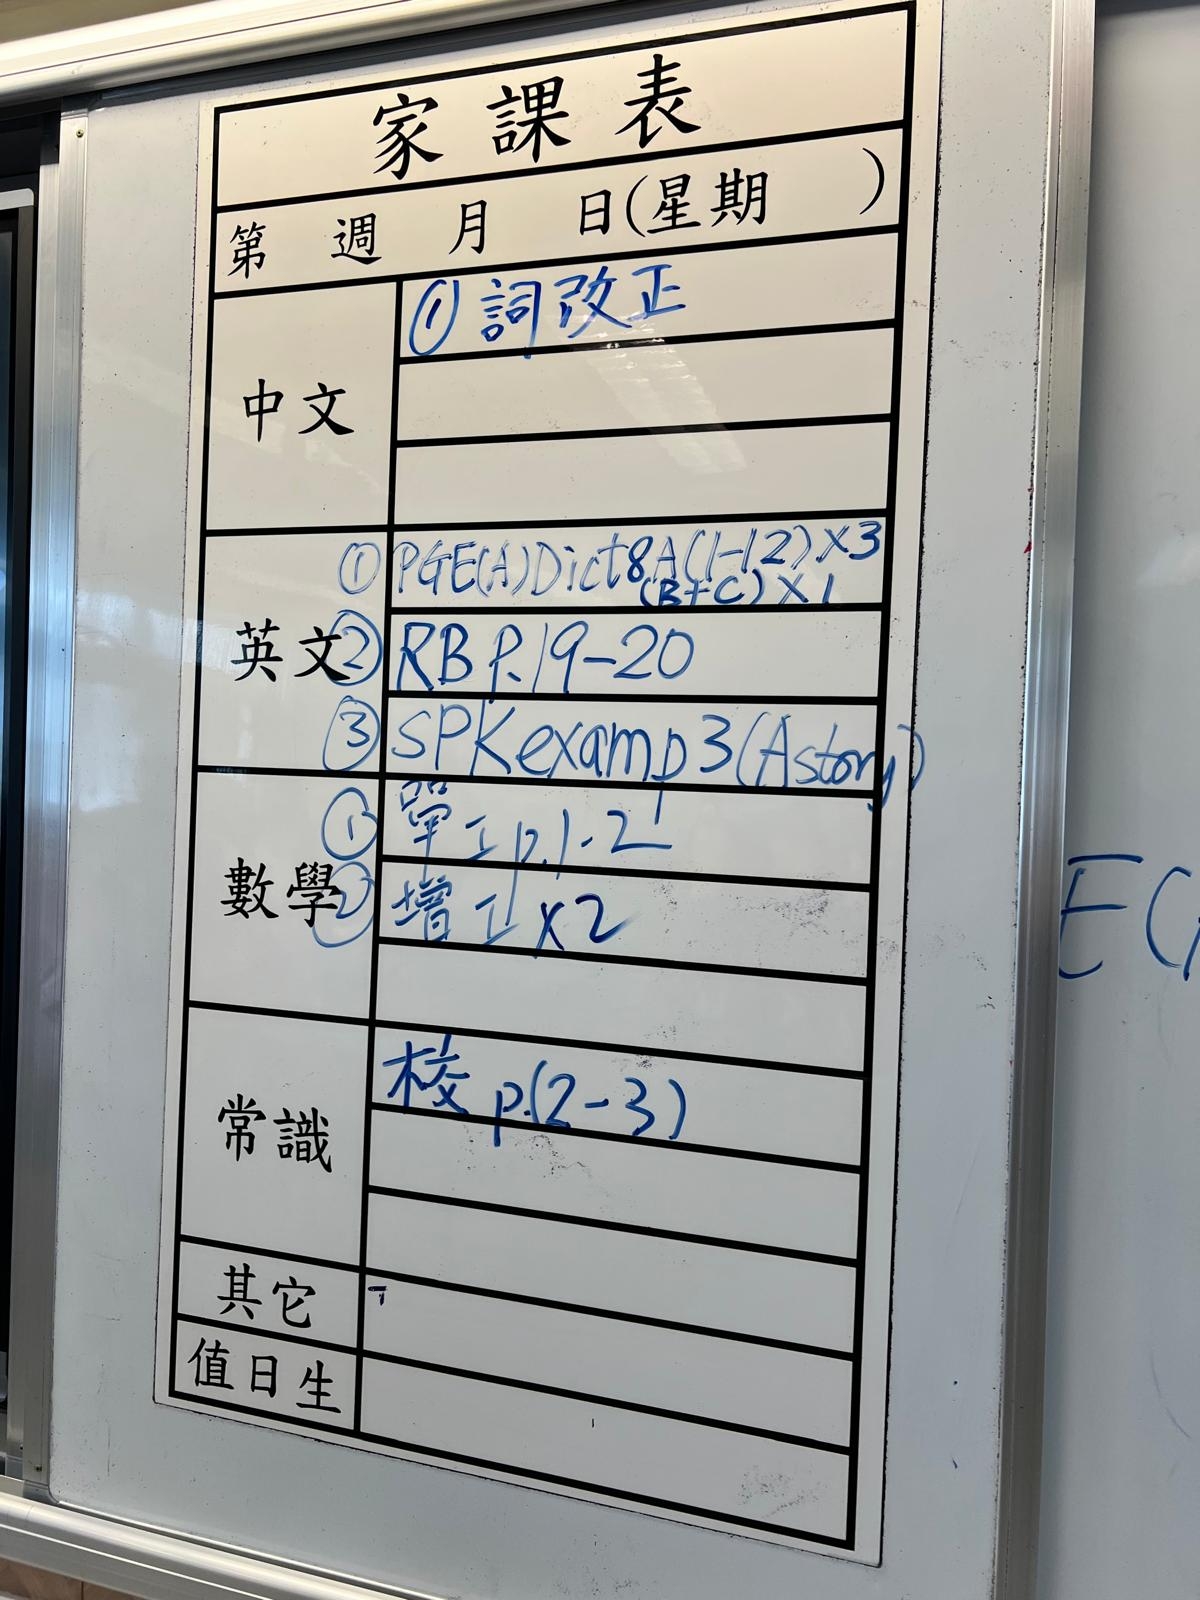 家課表
第 週 月 日(星期 )
中文
① 詞改正
英文
① PGE(A)Dict8A(1-12)×3
(B+C)×1
② RB P.19-20
③ SPK exam p3(A story)
數學
① 單工p.1-2
② 增工×2
常識
校 p.(2-3)
其它
值日生
E(